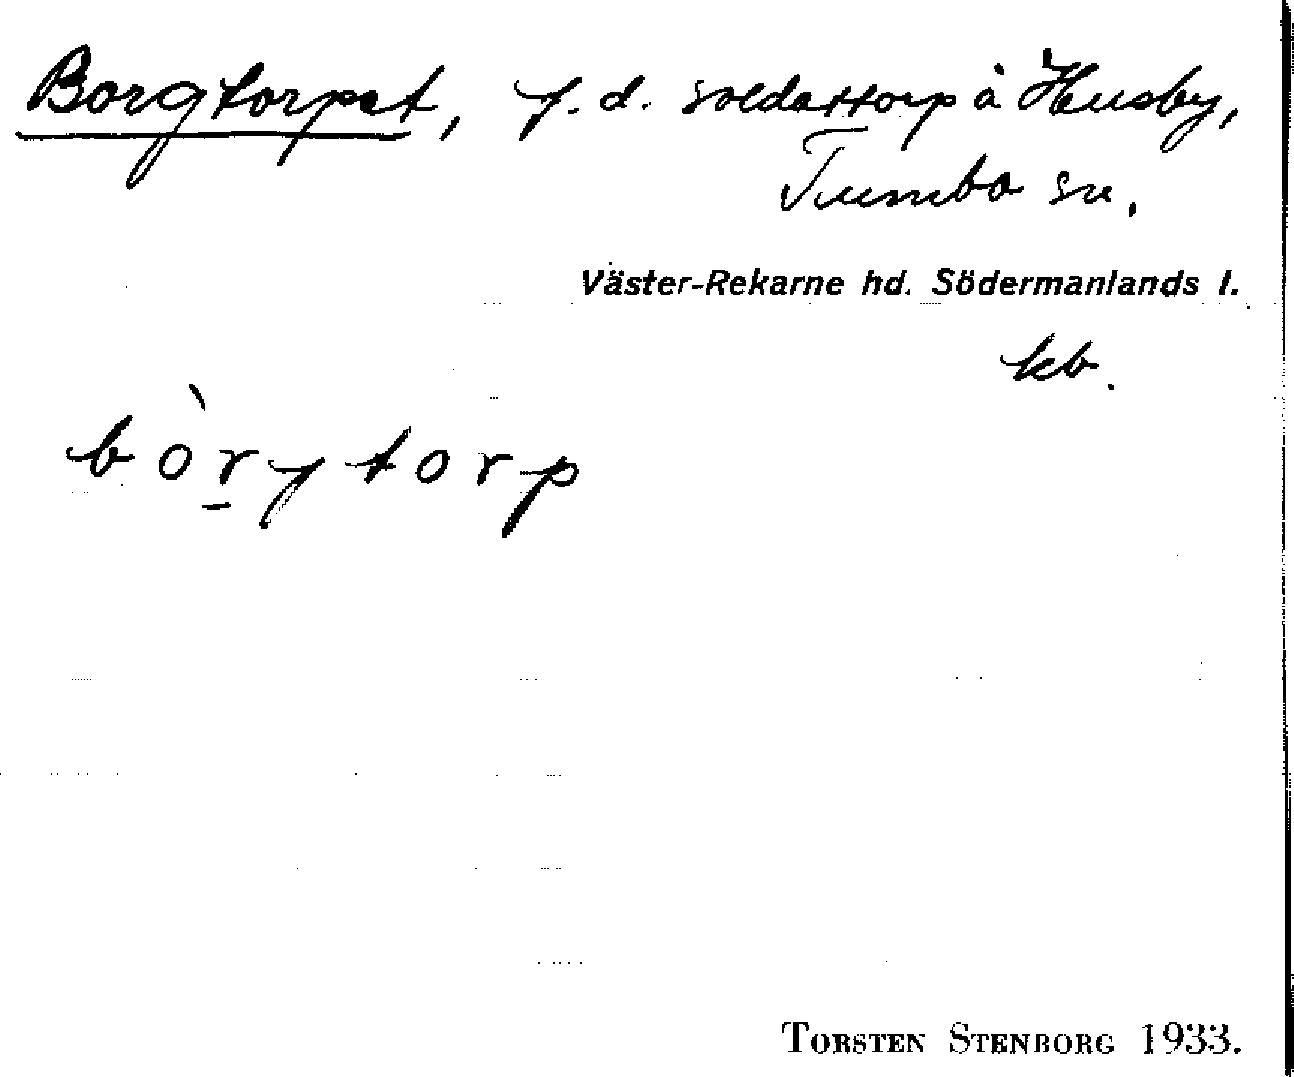 Borgtorpet, f.d. soldattorp å Husby,
Tumbo sn.
Väster-Rekarne hd. Södermanlands l.
kb.
bòrytorp
TORSTEN STENBORG 1933.